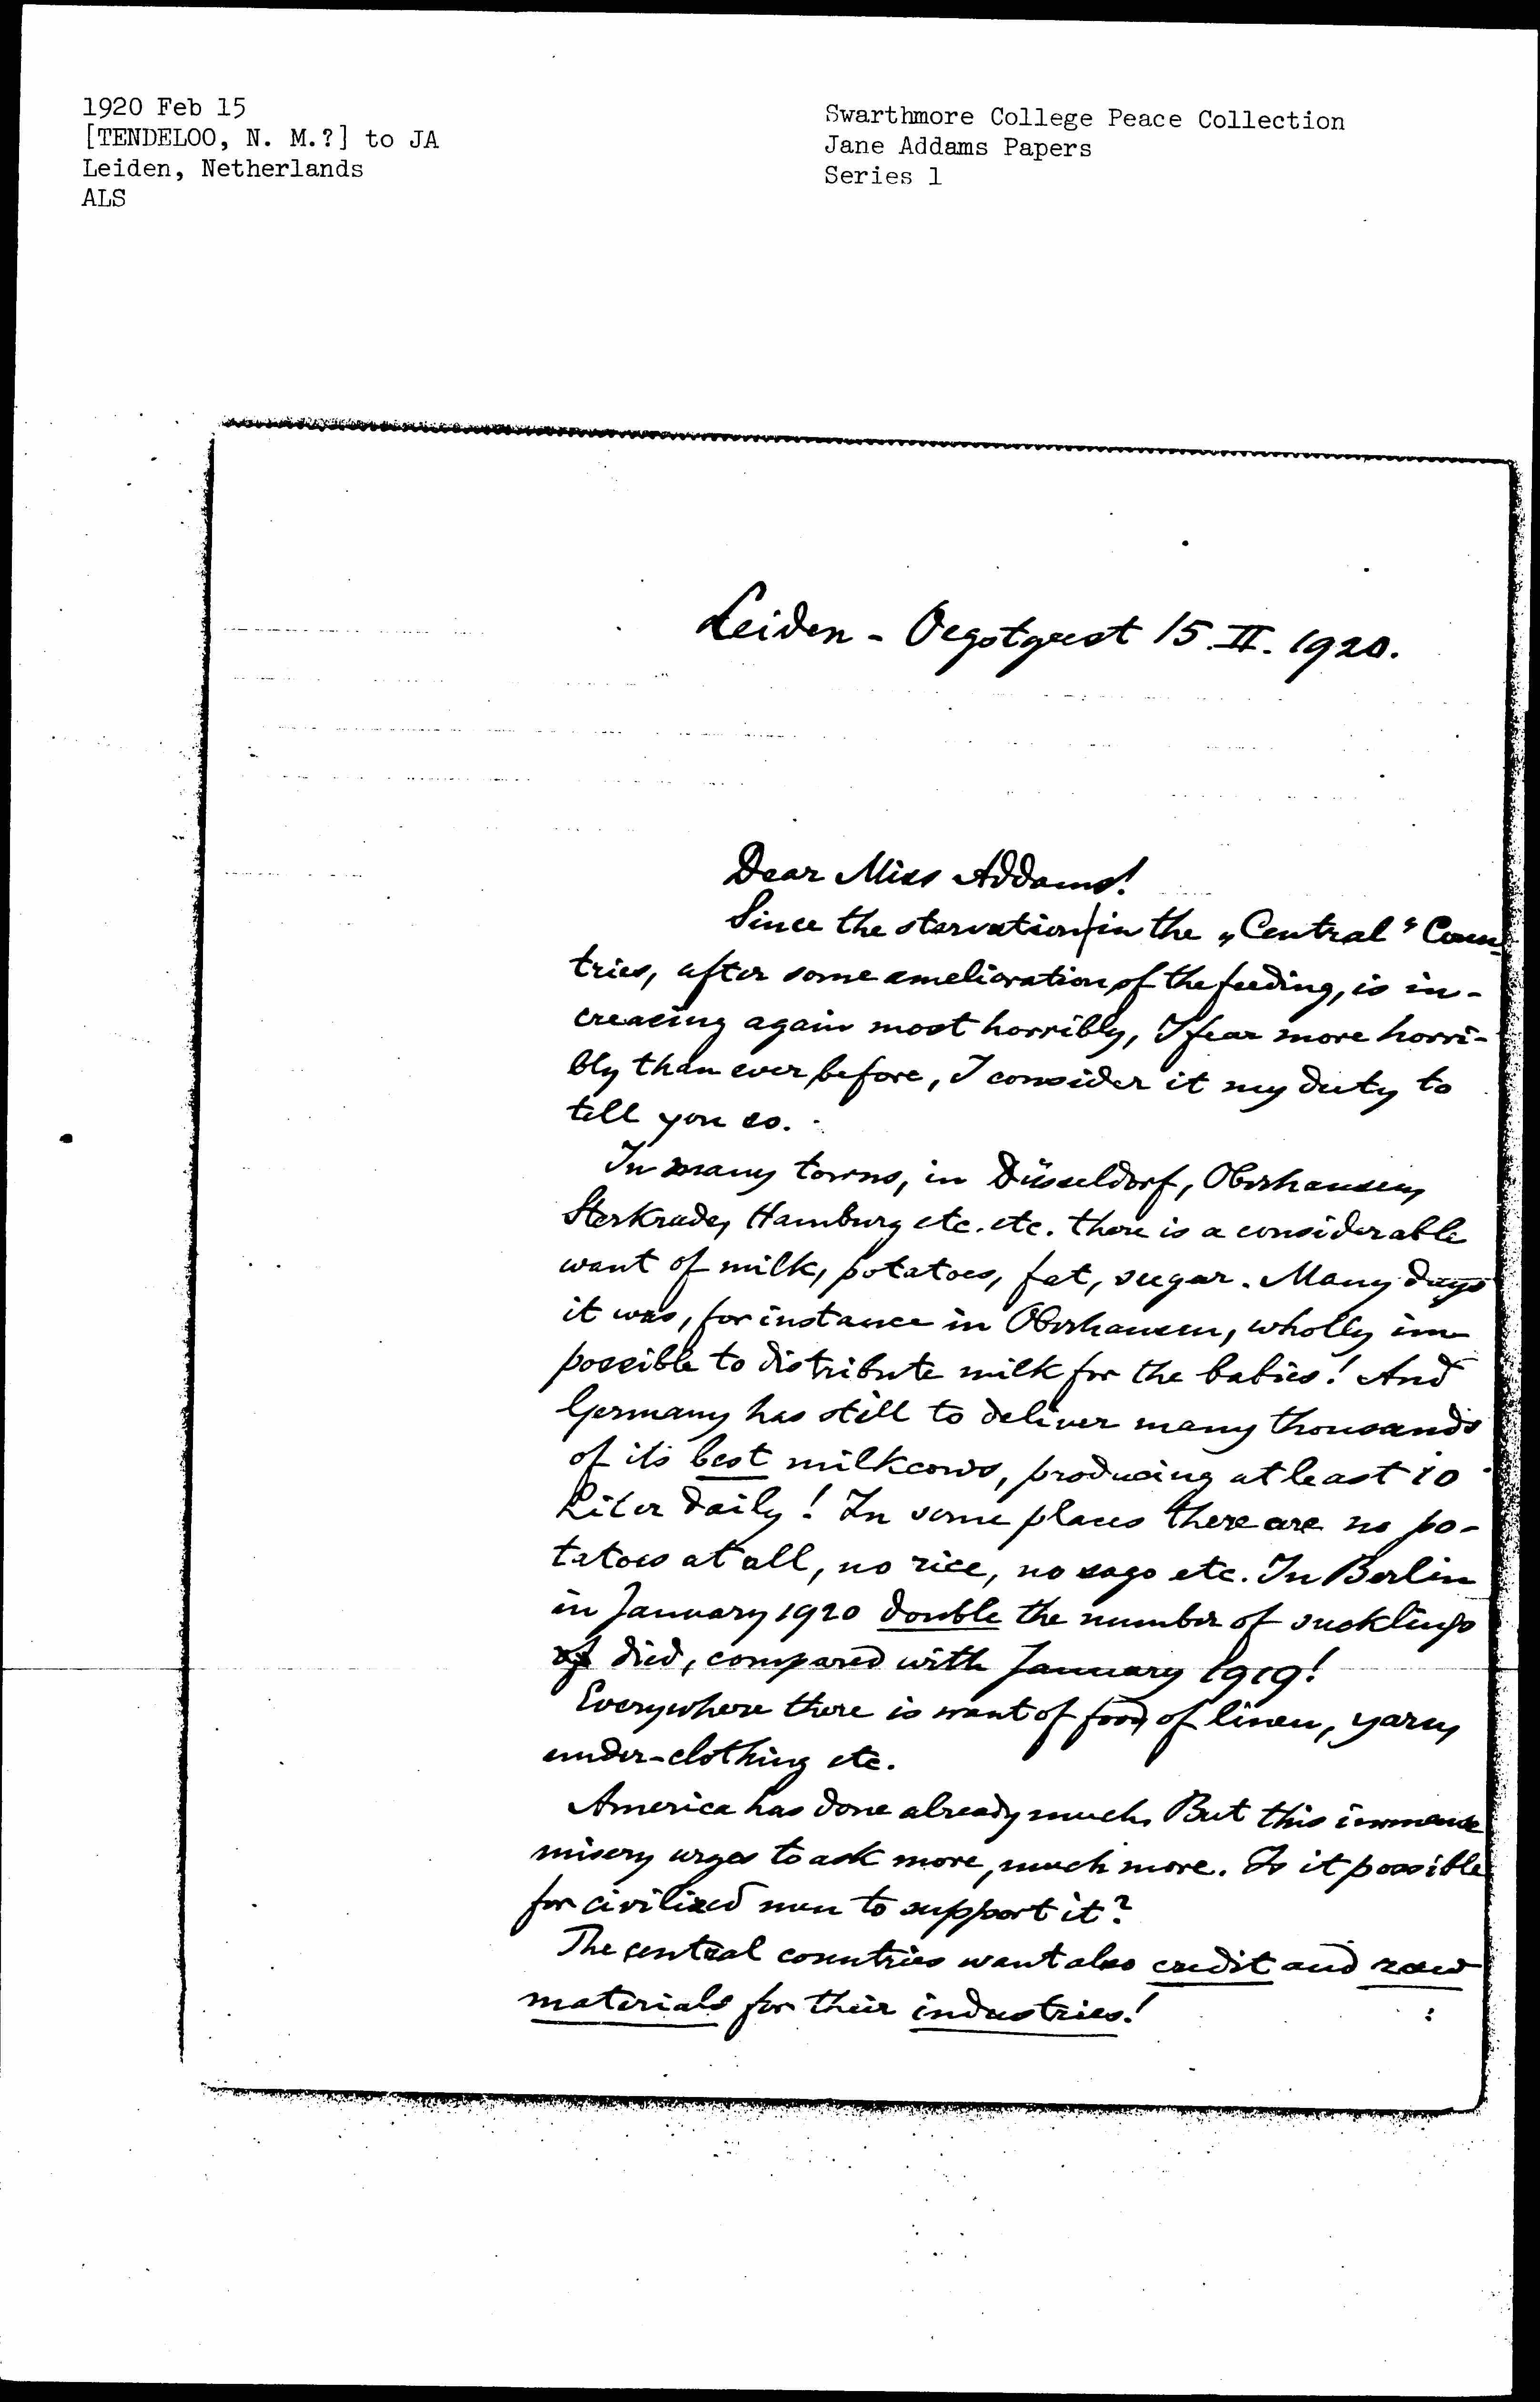 1920 Feb 15
[TENDELOO, N. M.?] to JA
Leiden, Netherlands
ALS
Swarthmore College Peace Collection
Jane Addams Papers
Series 1
Leiden - Oegstgeest 15.II.1920.
Dear Miss Addams!
Since the starvation in the „Central" Coun-
tries, after some amelioration of the feeding, is in-
creasing again most horribly, I fear more horri-
bly than ever before, I consider it my duty to
tell you so.
In many towns, in Düsseldorf, Oberhausen,
Sterkrade, Hamburg etc. etc. there is a considerable
want of milk, potatoes, fat, sugar. Many days
it was, for instance in Oberhausen, wholly im-
possible to distribute milk for the babies! And
Germany has still to deliver many thousands
of its best milkcows, producing at least 10
Liter daily! In some places there are no po-
tatoes at all, no rice, no sago etc. In Berlin
in January 1920 double the number of sucklings
of died, compared with January 1919!
Everywhere there is want of food, of linen, yarn,
under-clothing etc.
America has done already much. But this immense
misery urges to ask more, much more. Is it possible
for civilized men to support it?
The central countries want also credit and raw
materials for their industries!